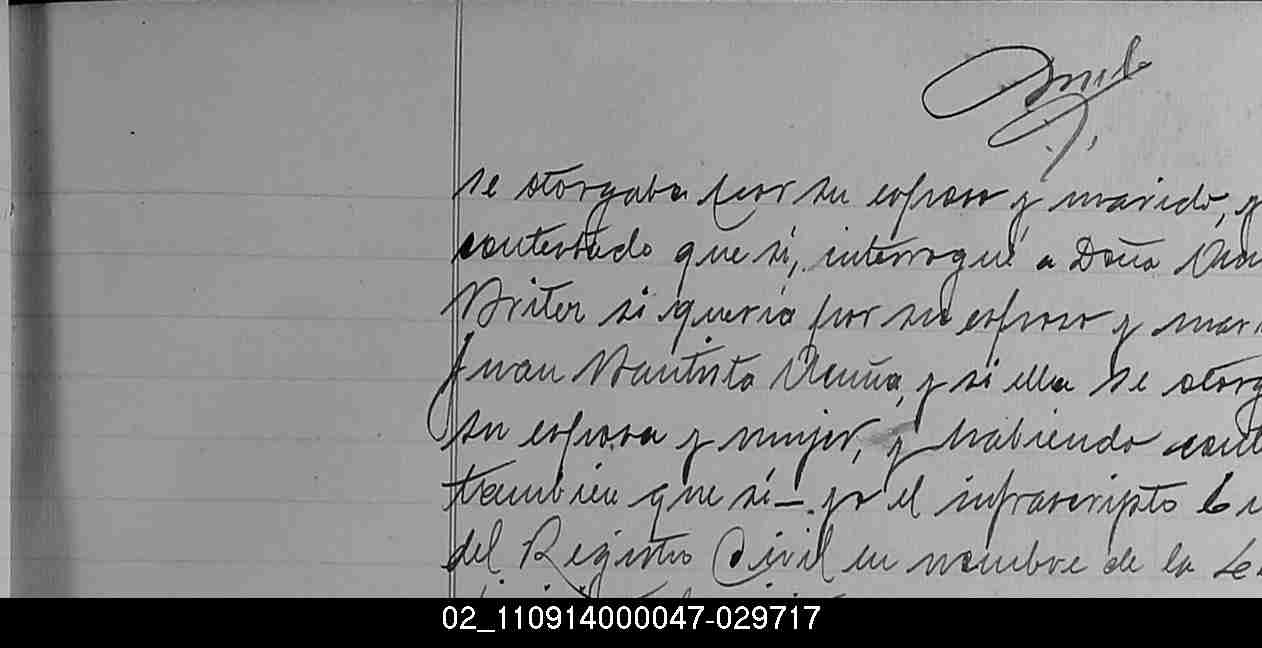 se otorgaba por su esposo y marido, y
contestado que sí, interrogué a Doña
Briter si quería por su esposo y mar
Juan Bautista Acuña, y si ella se otorg
su esposa y mujer, y habiendo cont
también que sí—yo el infrascripto
del Registro Civil en nombre de la Le
02_110914000047-029717